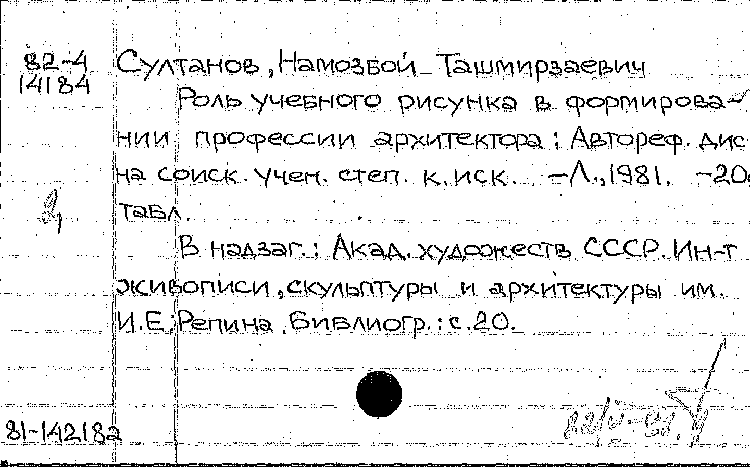 82-4
14184
Султанов, Намозбой Ташмирзаевич
Роль учебного рисунка в формирова-
нии профессии архитектора : Автореф. дис
на соиск. учен. степ. к. иск. —Л., 1981. —20с
табл.
В надзаг.: Акад. художеств СССР. Ин-т
живописи, скульптуры и архитектуры им.
И.Е. Репина. Библиогр.: с. 20.
81-142182